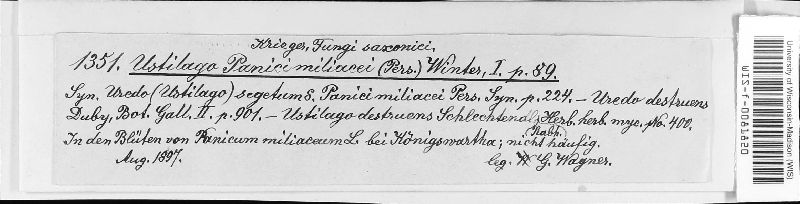 Krieger, Fungi saxonici.
1351. Ustilago Panici miliacei (Pers.) Winter, I. p. 89.
Syn. Uredo (Ustilago) segetum δ. Panici miliacei Pers. Syn. p. 224. – Uredo destruens
Duby, Bot. Gall. II. p. 901. – Ustilago destruens Schlechtendal, Herb. herb. myc. No. 400.
(Rabh.)
In den Blüten von Panicum miliaceum L. bei Königswartha; nicht häufig.
Aug. 1897.
leg. G. Wagner.
University of Wisconsin-Madison (WIS)
WIS-f-0061820